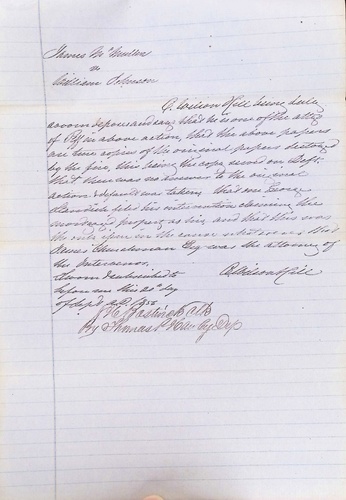 James McMullen
vs
William Johnson
C. Wilson Hill being duly
sworn deposes and says that he is one of the attys
of Plff in above action, that the above papers
are true copies of the original papers destroyed
by the fire, this being the copy served on Deft.
that there was no answer to the original
action & default was taken that one George
filed his intervention claiming the
property as his, and that this was
the only issue in the
James Esq was the attorney of
the Intervenor.
Sworn & subscribed to
before me this 20th day
of Sept A.D. 1855
C. Wilson Hill
Hastings Clk
By Thomas P. Dep